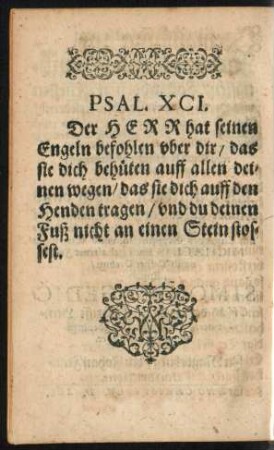 PSAL. XCI.
Der HERR hat seinen
Engeln befohlen vber dir / das
sie dich behüten auff allen dei-
nen wegen / das sie dich auff den
Henden tragen / vnd du deinen
Fuß nicht an einen Stein stos-
sest.